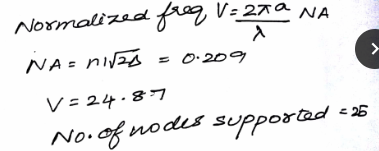 Normalized freq V = 2πa/λ NA
NA = n1√2Δ = 0.209
V = 24.87
No. of nodes supported = 25